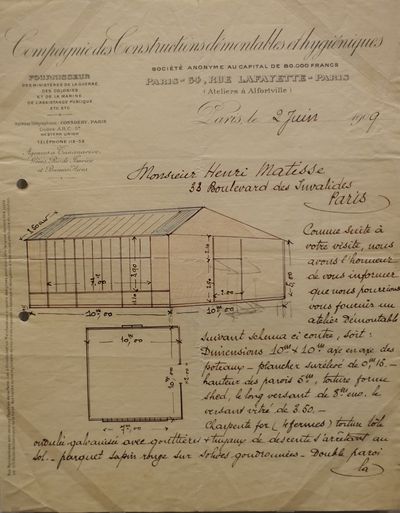 Compagnie des Constructions démontables et hygiéniques
SOCIÉTÉ ANONYME AU CAPITAL DE 80.000 FRANCS
PARIS - 54, RUE LAFAYETTE - PARIS
(Ateliers à Alfortville)
FOURNISSEUR
DES MINISTÈRES DE LA GUERRE,
DES COLONIES
ET DE LA MARINE
DE L'ASSISTANCE PUBLIQUE
ETC. ETC.
PARIS
Codes A.B.C. 5e
WESTERN UNION
TÉLÉPHONE
Agences à Tananarive,
Rio de Janeiro
et Buenos-Ayres
Paris, le 2 Juin 1909
Monsieur Henri Matisse
33 Boulevard des Invalides
Paris
Comme suite à
votre visite, nous
avons l'honneur
de vous informer
que nous pourrions
vous fournir un
atelier Démontable
suivant schema ci contre, soit :
Dimensions 10m x 10m axe en axe des
poteaux - plancher surélevé de 0m,16. -
hauteur des parois 5m, toiture forme
shed, le long versant de le
versant vitré de 3.50. -
Charpente fer (4 fermes) toiture tôle
ondulée galvanisée avec gouttières & tuyaux de descente s'arrêtant au
sol. - parquet sapin rouge sur solives goudronnées - Double paroi
la
10,00
10.00
5,00
10,00
10,00